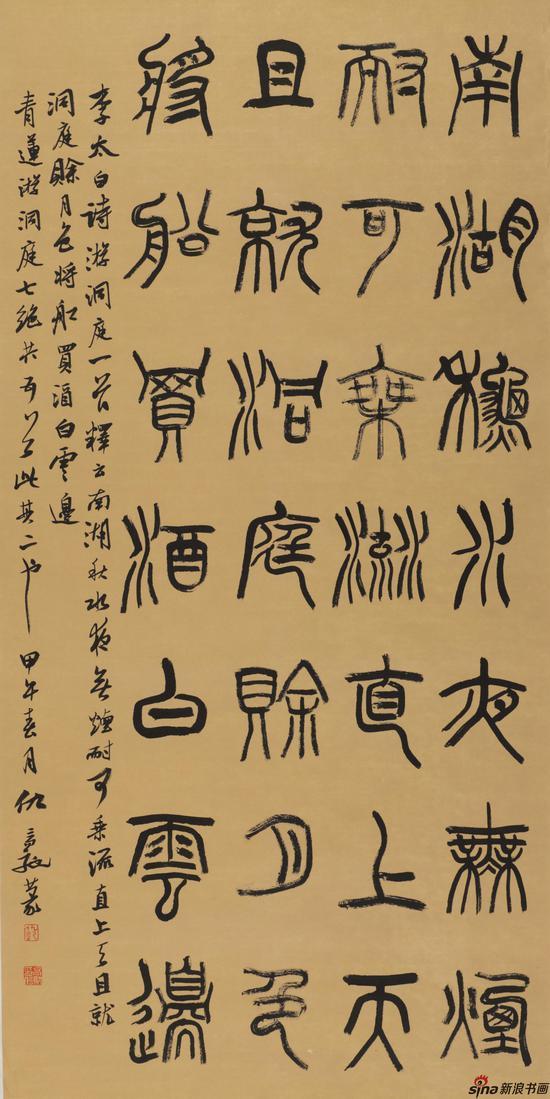 南湖秋水夜無煙
耐可乘流直上天
且就洞庭賒月色
將船買酒白雲邊
李太白诗游洞庭一首释云南湖秋水夜無煙耐可乘流直上天且就
洞庭賒月色将船買酒白雲邊
青蓮游洞庭七绝共五首此其二也 甲午春月
sina新浪书画